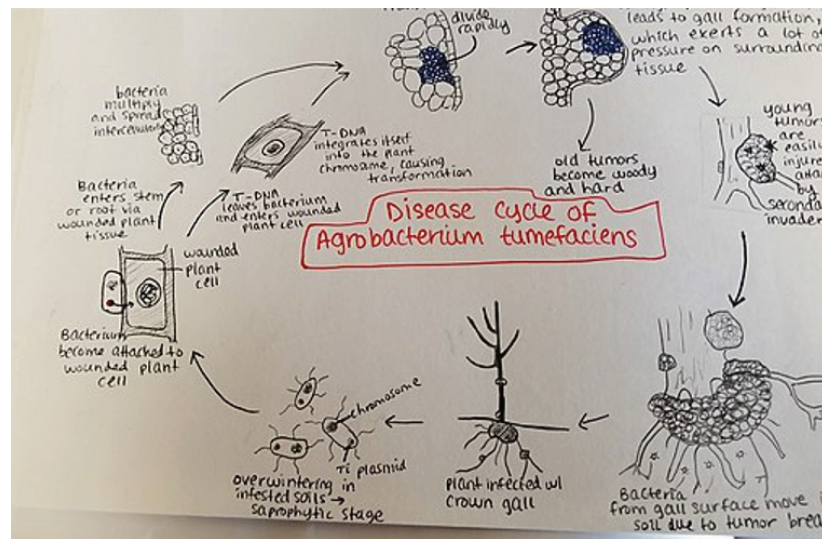 divide
rapidly
leads to gall formation,
which exerts a lot of
pressure on surrounding
tissue
bacteria
multiply
and spread
T-DNA
integrates itself
into the plant
chromosome, causing
transformation
old tumors
become woody
and hard
young
tumors
are
easily
by
Bacteria
enters stem
or root via
wounded plant
tissue
T-DNA
leaves bacterium
and enters wounded
plant cell
Disease cycle of
Agrobacterium tumefaciens
wounded
plant
cell
Bacterium
become attached to
wounded plant
cell
chromosome
Ti plasmid
overwintering in
infested soils →
saprophytic stage
Plant infected w/
crown gall
Bacteria
from gall surface move
soil due to tumor